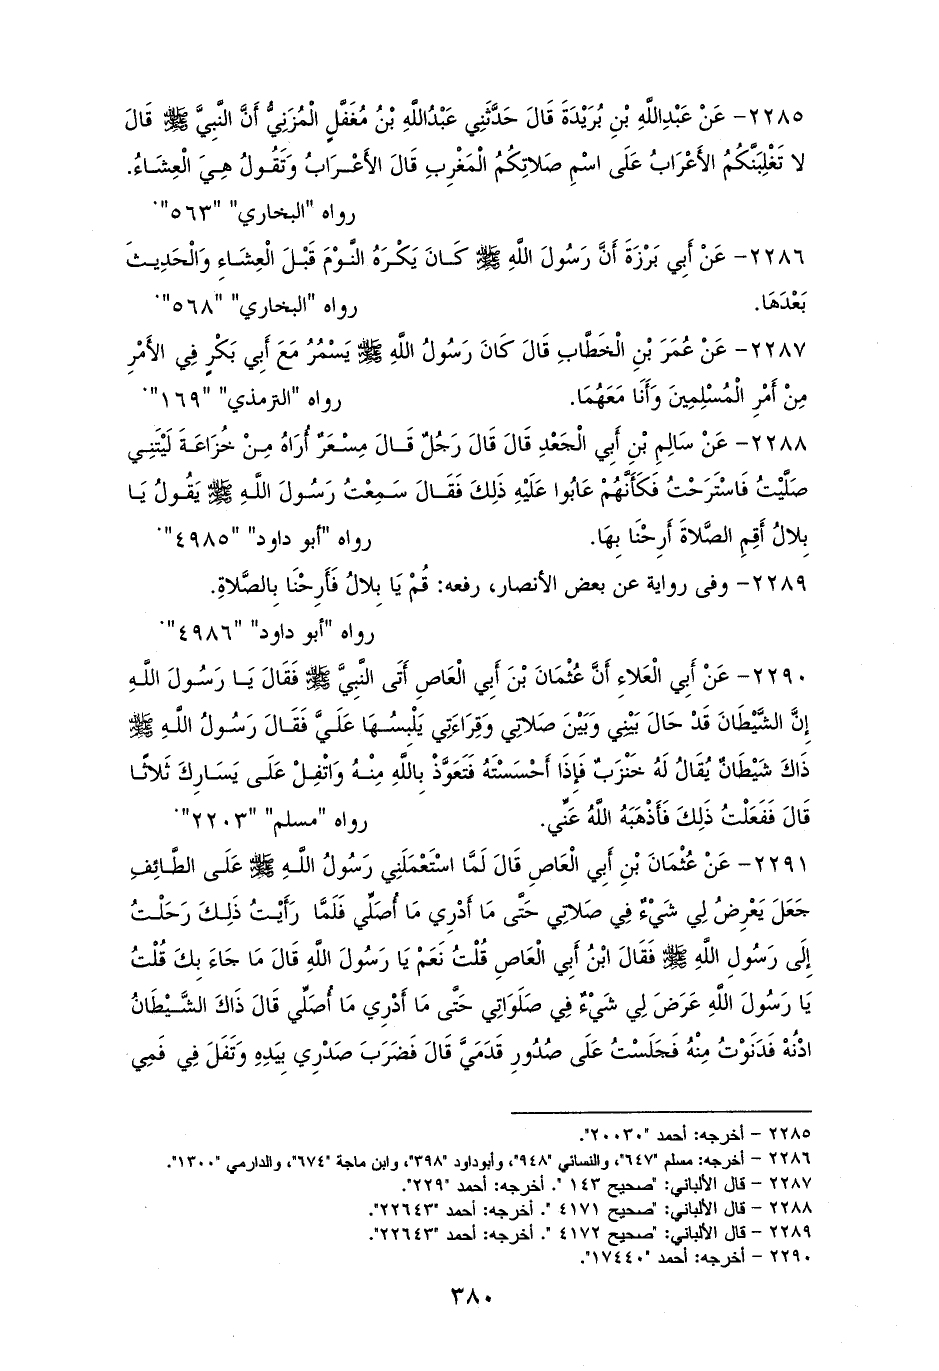 ٢٢٨٥- عَنْ عَبْدِاللَّهِ بْنِ بُرَيْدَةَ قَالَ حَدَّثَنِي عَبْدُاللَّهِ بْنُ مُغَفَّلٍ الْمُزَنِيُّ أَنَّ النَّبِيَّ ﷺ قَالَ
لا تَغْلِبَنَّكُمُ الأَعْرَابُ عَلَى اسْمِ صَلاتِكُمُ الْمَغْرِبِ قَالَ الأَعْـرَابُ وَتَقُولُ هِـيَ الْعِشَـاءُ.
رواه "البخاري" "٥٦٣".
٢٢٨٦- عَنْ أَبِي بَرْزَةَ أَنَّ رَسُولَ اللَّهِ ﷺ كَـانَ يَكْـرَهُ النَّـوْمَ قَبْـلَ الْعِشَـاءِ وَالْحَدِيـثَ
بَعْدَهَا. رواه "البخاري" "٥٦٨".
٢٢٨٧- عَنْ عُمَرَ بْنِ الْخَطَّابِ قَالَ كَانَ رَسُولُ اللَّهِ ﷺ يَسْمُرُ مَعَ أَبِي بَكْرٍ فِي الأَمْرِ
مِنْ أَمْرِ الْمُسْلِمِينَ وَأَنَا مَعَهُمَا. رواه "الترمذي" "١٦٩".
٢٢٨٨- عَنْ سَالِمِ بْنِ أَبِي الْجَعْدِ قَالَ قَالَ رَجُلٌ قَـالَ مِسْـعَرٌ أُرَاهُ مِـنْ خُزَاعَـةَ لَيْتَنِـي
صَلَّيْتُ فَاسْتَرَحْتُ فَكَأَنَّهُمْ عَابُوا عَلَيْهِ ذَلِكَ فَقَـالَ سَـمِعْتُ رَسُـولَ اللَّـهِ ﷺ يَقُولُ يَـا
بِلالُ أَقِمِ الصَّلاةَ أَرِحْنَا بِهَا. رواه "أبو داود" "٤٩٨٥".
٢٢٨٩- وفى رواية عن بعض الأنصار، رفعه: قُمْ يَا بِلالُ فَأَرِحْنَا بِالصَّلاةِ.
رواه "أبو داود" "٤٩٨٦".
٢٢٩٠- عَنْ أَبِي الْعَلاءِ أَنَّ عُثْمَانَ بْنَ أَبِي الْعَاصِ أَتَى النَّبِيَّ ﷺ فَقَالَ يَـا رَسُـولَ اللَّـهِ
إِنَّ الشَّيْطَانَ قَدْ حَالَ بَيْنِي وَبَيْنَ صَلاتِي وَقِرَاءَتِي يَلْبِسُـهَا عَلَـيَّ فَقَـالَ رَسُـولُ اللَّـهِ ﷺ
ذَاكَ شَيْطَانٌ يُقَالُ لَهُ خَنْزَبٌ فَإِذَا أَحْسَسْتَهُ فَتَعَوَّذْ بِاللَّهِ مِنْـهُ وَاتْفِـلْ عَلَـى يَسَـارِكَ ثَلاثًـا
قَالَ فَفَعَلْتُ ذَلِكَ فَأَذْهَبَهُ اللَّهُ عَنِّي. رواه "مسلم" "٢٢٠٣".
٢٢٩١- عَنْ عُثْمَانَ بْنِ أَبِي الْعَاصِ قَالَ لَمَّا اسْتَعْمَلَنِي رَسُولُ اللَّـهِ ﷺ عَلَـى الطَّـائِفِ
جَعَلَ يَعْرِضُ لِي شَيْءٌ فِي صَلاتِي حَتَّى مَا أَدْرِي مَا أُصَلِّي فَلَمَّا رَأَيْتُ ذَلِـكَ رَحَلْـتُ
إِلَى رَسُولِ اللَّهِ ﷺ فَقَالَ ابْنُ أَبِي الْعَاصِ قُلْتُ نَعَمْ يَا رَسُولَ اللَّهِ قَالَ مَا جَاءَ بِكَ قُلْتُ
يَا رَسُولَ اللَّهِ عَرَضَ لِي شَيْءٌ فِي صَلَوَاتِي حَتَّى مَا أَدْرِي مَا أُصَلِّي قَالَ ذَاكَ الشَّـيْطَانُ
ادْنُهْ فَدَنَوْتُ مِنْهُ فَجَلَسْتُ عَلَى صُدُورِ قَدَمَيَّ قَالَ فَضَرَبَ صَدْرِي بِيَدِهِ وَتَفَلَ فِي فَمِي
٢٢٨٥ - أخرجه: أحمد "٢٠٠٣٠".
٢٢٨٦ - أخرجه: مسلم "٦٤٧"، والنسائي "٩٤٨"، وأبوداود "٣٩٨"، وابن ماجة "٦٧٤"، والدارمي "١٣٠٠".
٢٢٨٧ - قال الألباني: "صحيح ١٤٣ ". أخرجه: أحمد "٢٢٩".
٢٢٨٨ - قال الألباني: "صحيح ٤١٧١ ". أخرجه: أحمد "٢٢٦٤٣".
٢٢٨٩ - قال الألباني: "صحيح ٤١٧٢ ". أخرجه: أحمد "٢٢٦٤٣".
٢٢٩٠ - أخرجه: أحمد "١٧٤٤٠".
٣٨٠